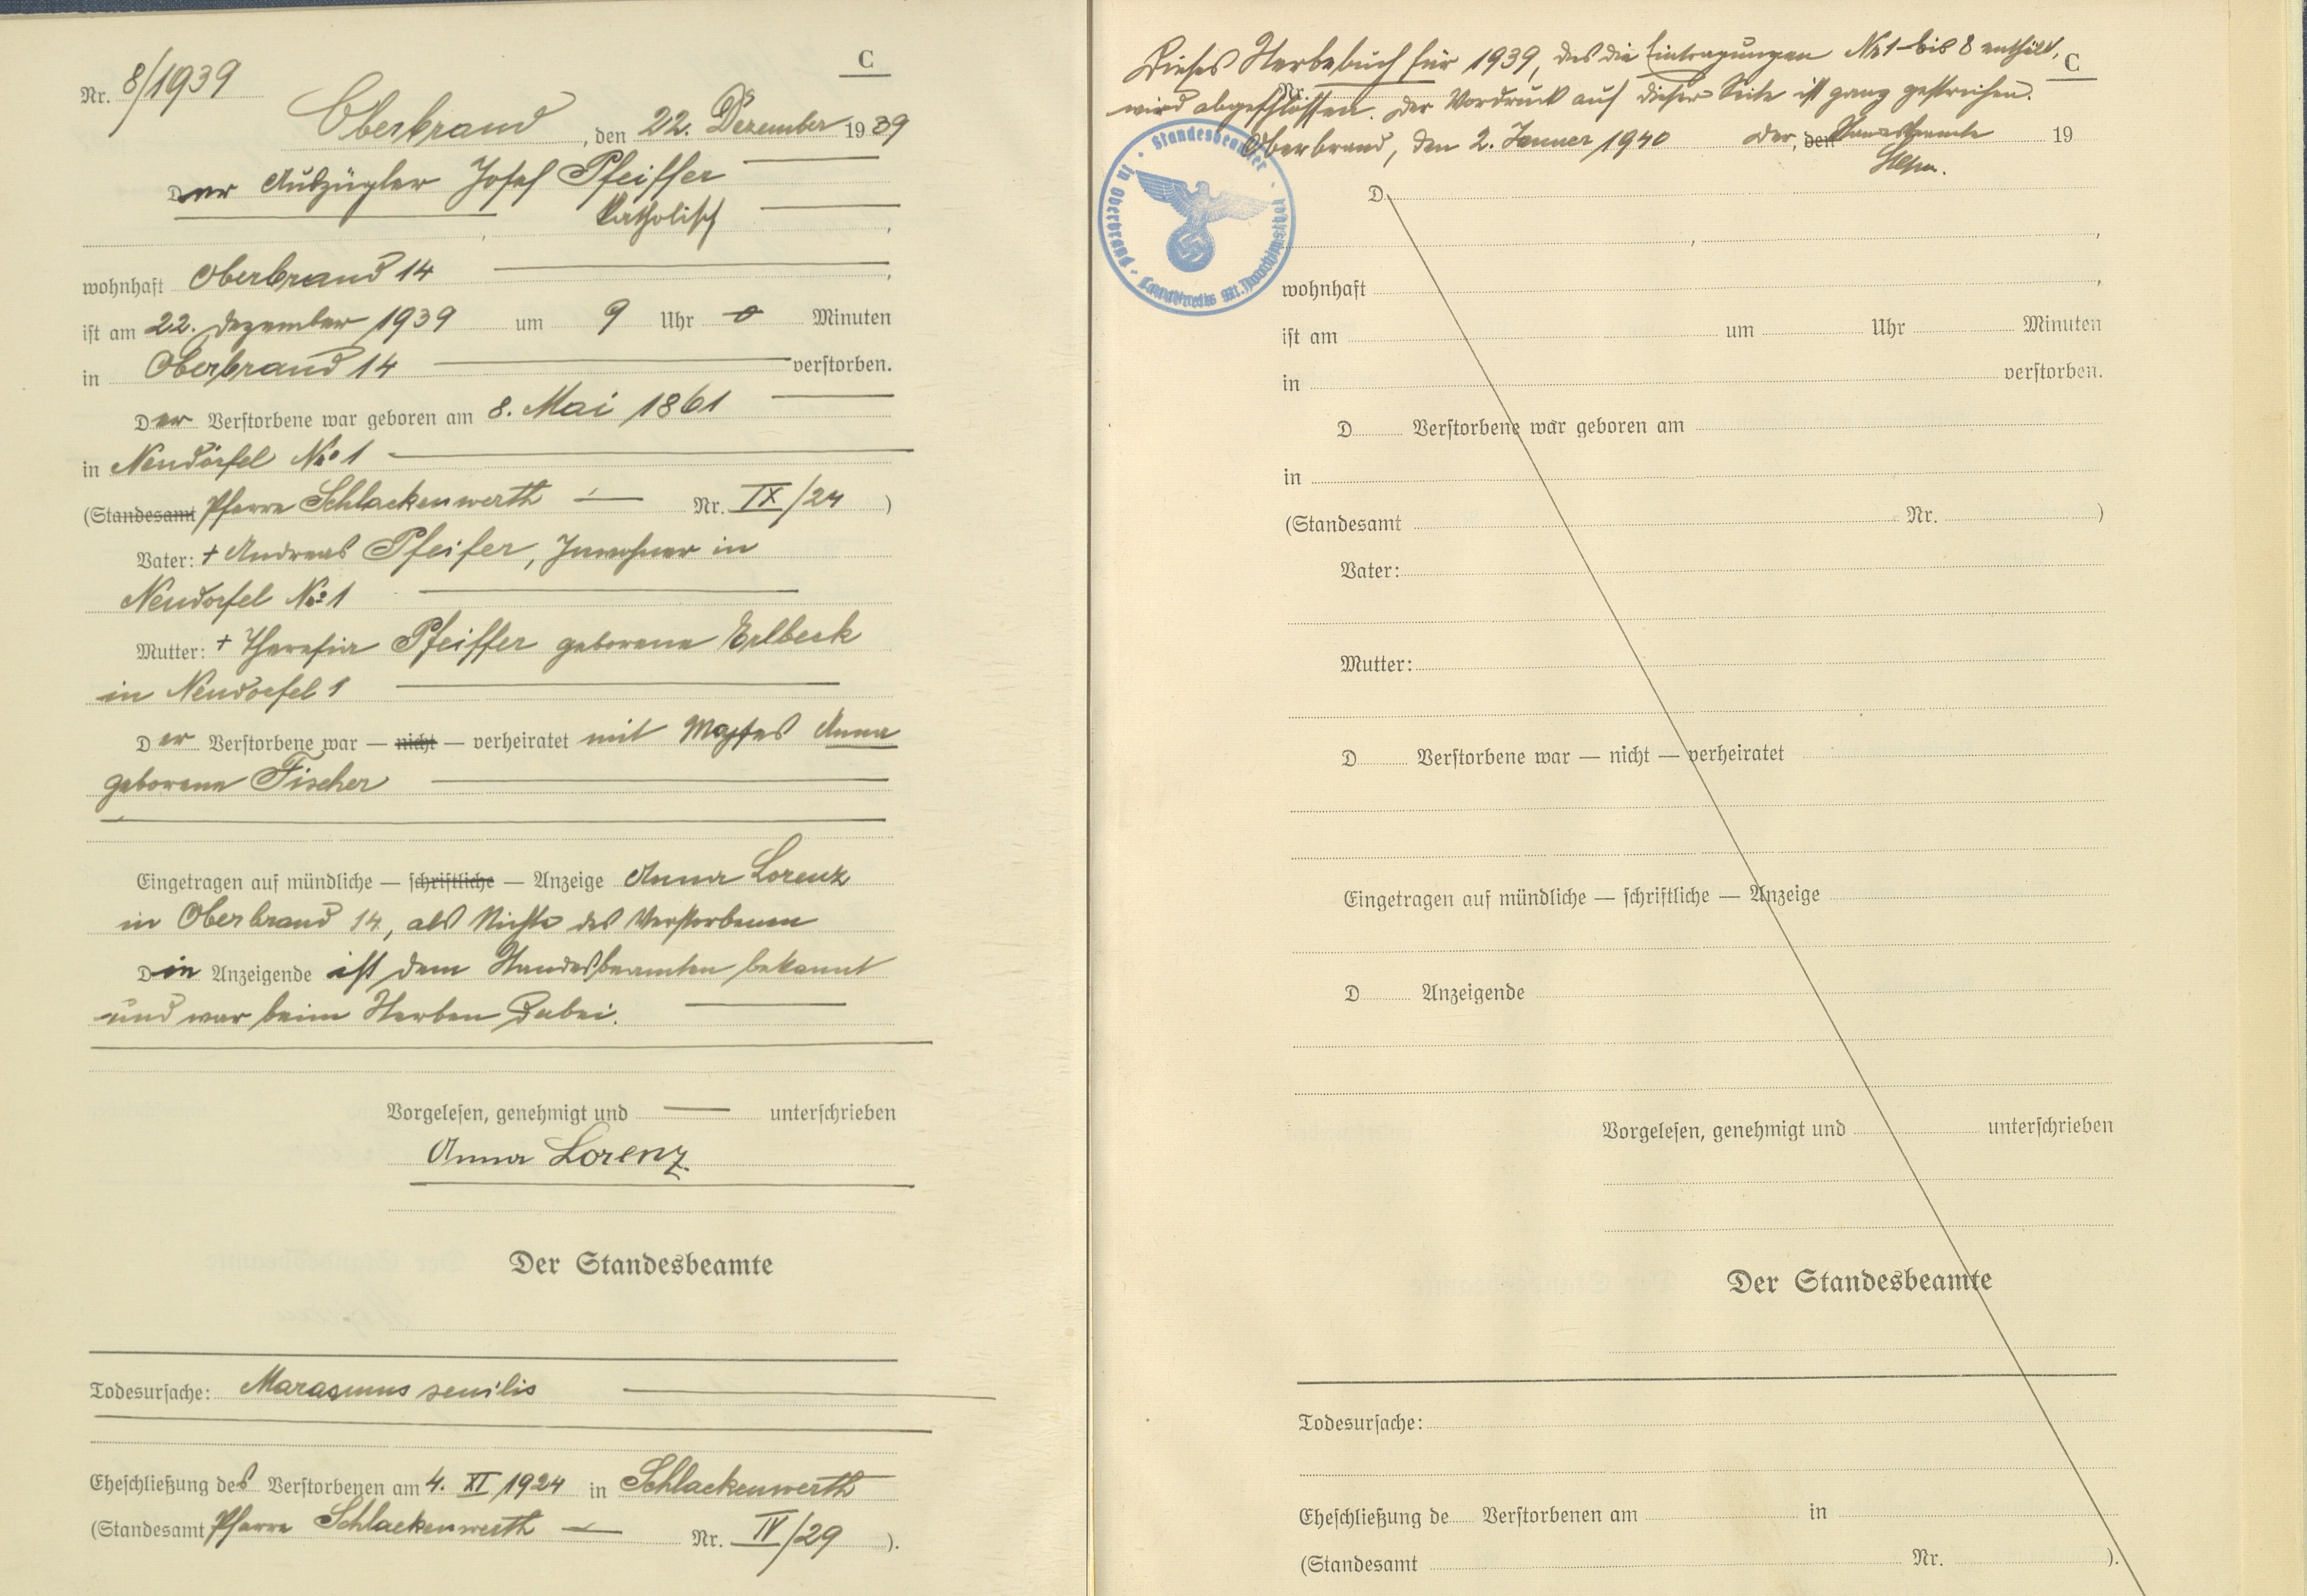 C
Nr. 8/1939
Oberbrand, den 22. Dezember 1939
Der Auszügler Josef Pfeiffer
katholisch,
wohnhaft Oberbrand 14,
ist am 22. Dezember 1939 um 9 Uhr 0 Minuten
in Oberbrand 14 verstorben.
Der Verstorbene war geboren am 8. Mai 1861
in Neudörfel No 1
(Standesamt Pfarre Schlackenwerth — Nr. IX/24)
Vater: + Andreas Pfeifer, Inwohner in
Neudörfel No 1
Mutter: + Theresia Pfeiffer geborene Erlbeck
in Neudorfel 1
Der Verstorbene war — nicht — verheiratet mit Anna
geborene Fischer
Eingetragen auf mündliche — schriftliche — Anzeige Anna Lorenz
in Oberbrand 14, als Nichte des Verstorbenen
Die Anzeigende ist dem Standesbeamten bekannt
und war beim Sterben dabei.
Vorgelesen, genehmigt und — unterschrieben
Anna Lorenz
Der Standesbeamte
Todesursache: Marasmus senilis
Eheschließung des Verstorbenen am 4. XI 1924 in Schlackenwerth
(Standesamt Pfarre Schlackenwerth — Nr. IV/29).
Dieses Sterbebuch für 1939, das die Eintragungen No 1 bis 8 enthält, C
Nr.
wird abgeschlossen. Der Vordruck auf dieser Seite ist ganz gestrichen.
Oberbrand, den 2. Jänner 1940 Der Standesbeamte, den 19
Standesbeamter in Oberbrand
D
, ,
wohnhaft ,
ist am um Uhr Minuten
in verstorben.
D Verstorbene war geboren am
in
(Standesamt Nr. )
Vater:
Mutter:
D Verstorbene war — nicht — verheiratet
Eingetragen auf mündliche — schriftliche — Anzeige
D Anzeigende
Vorgelesen, genehmigt und unterschrieben
Der Standesbeamte
Todesursache:
Eheschließung de Verstorbenen am in
(Standesamt Nr. ).